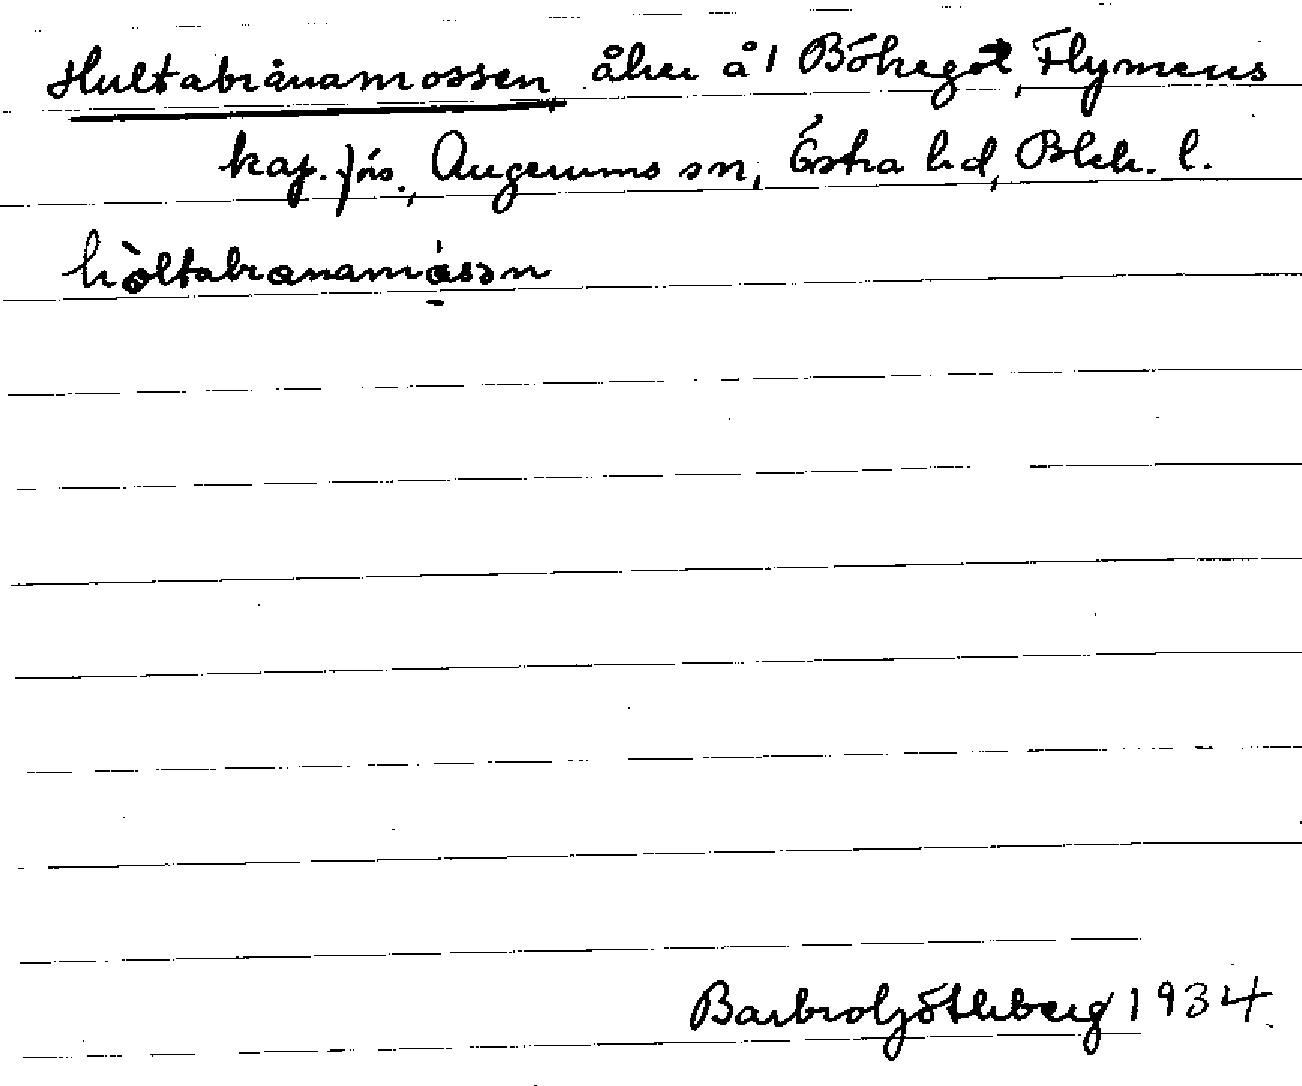 Hultabrånamossen åker å 1 Bökegöt, Flymens
kap. förs., Augerums sn, Östra hd, Blek. l.
hòltabranamåsən
Barbro Götheberg 1934